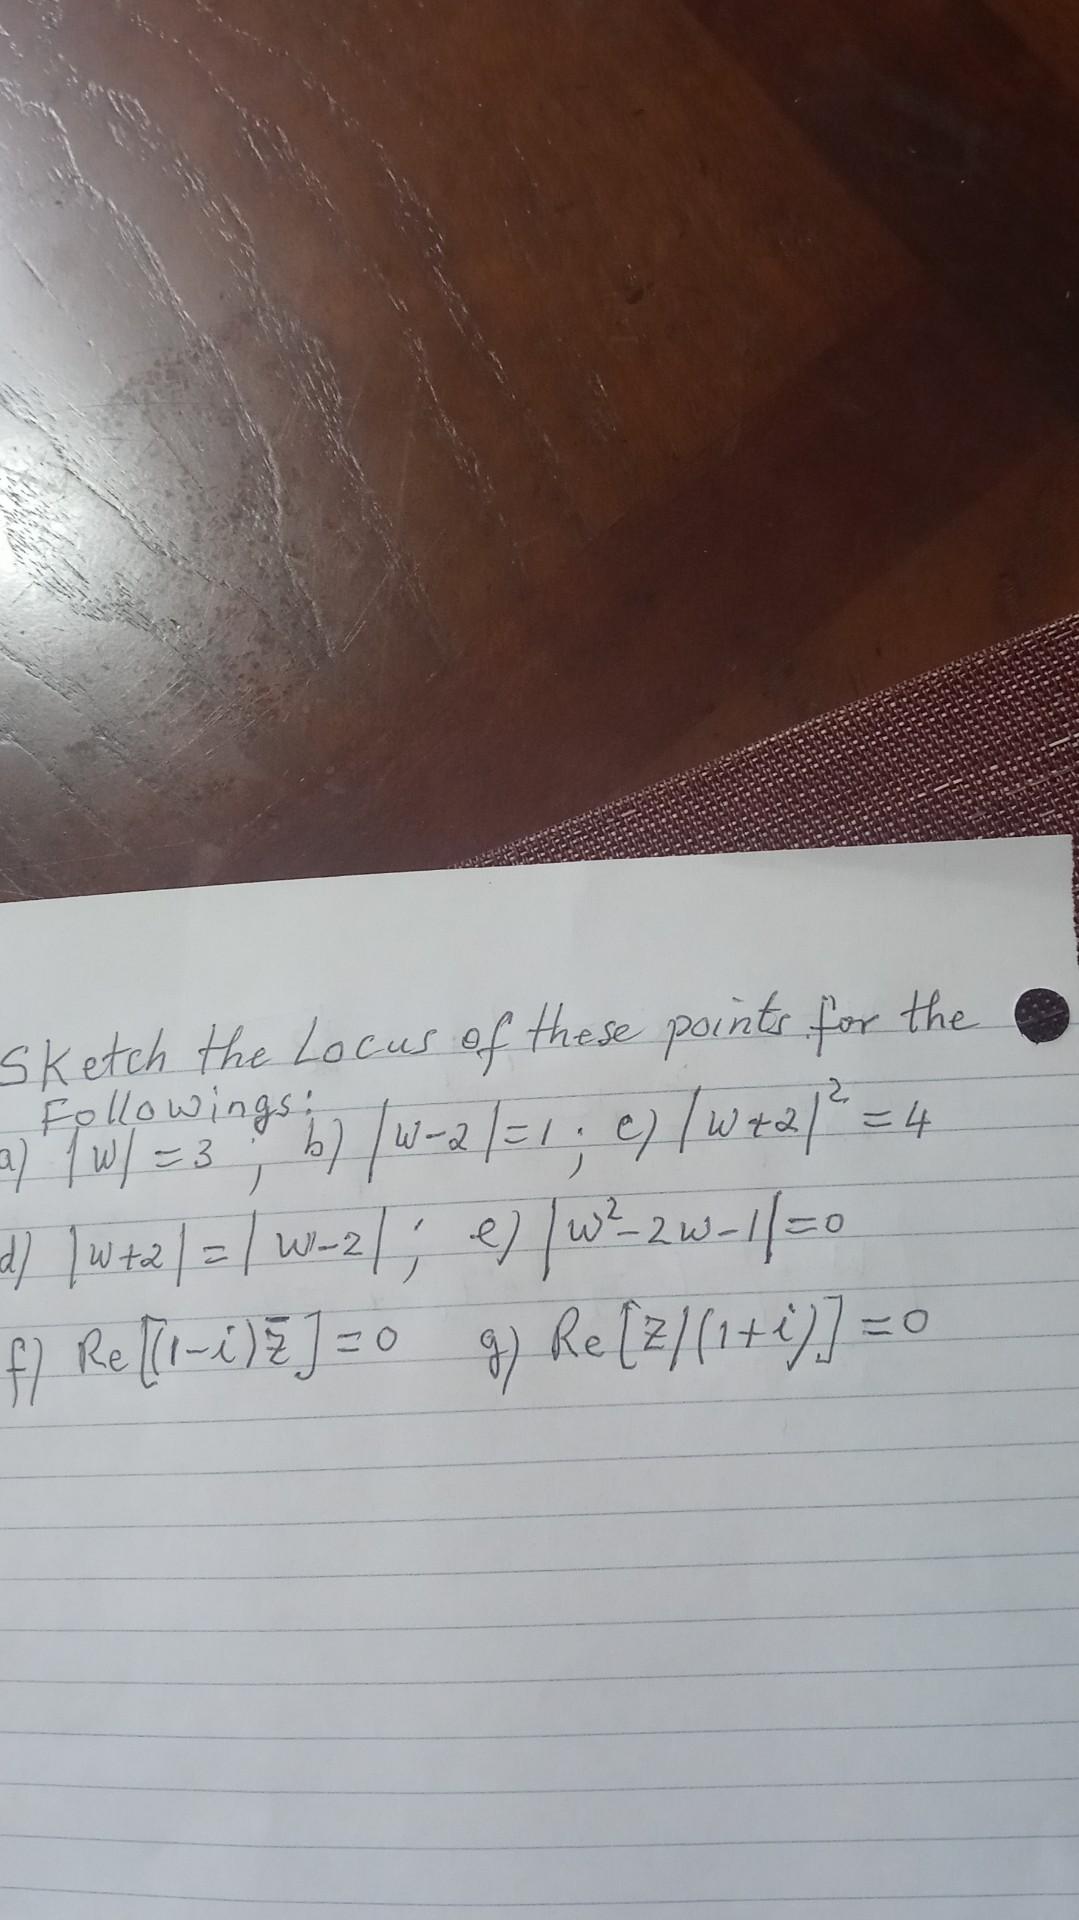 Sketch the Locus of these points for the
Followings:
a) |w| = 3 ; b) |w-2|=1 ; c) |w+2|² = 4
d) |w+2| = |w-2| ; e) |w²-2w-1|=0
f) Re[(1-i)z̄]=0 g) Re[z/(1+i)]=0